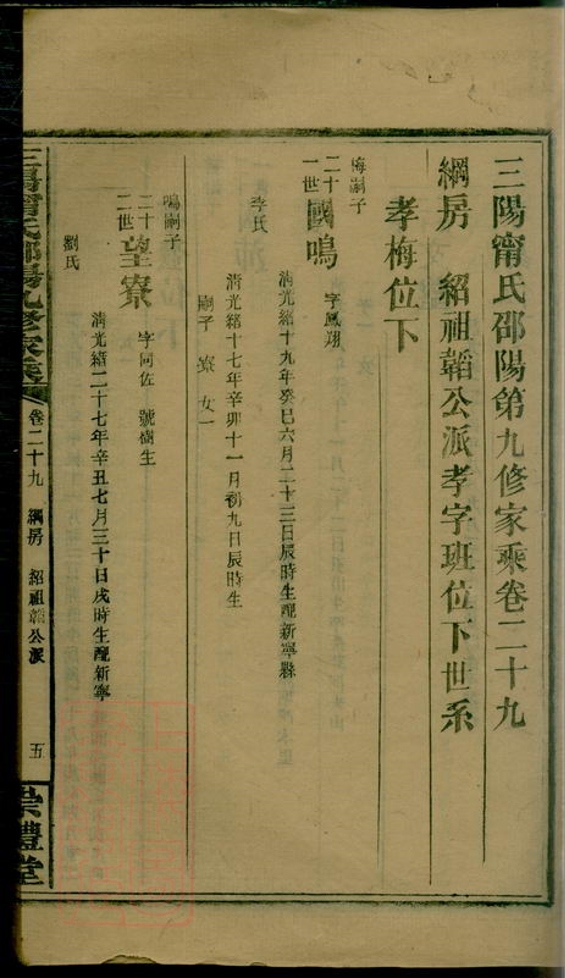 三陽甯氏邵陽第九修家乘卷二十九
綱房 紹祖韜公派孝字班位下世系
孝梅位下
梅嗣子
二十一世 國鳴 字鳳翔
清光緒十九年癸巳六月二十三日辰時生配新寧縣
李氏
清光緒十七年辛卯十一月初九日辰時生
嗣子 寮 女一
鳴嗣子
二十二世 望寮 字同佐 號樹生
清光緒二十七年辛丑七月三十日戌時生配新寧
劉氏
三陽甯氏邵陽九修家乘
卷二十九 綱房 紹祖韜公派
五
崇禮堂